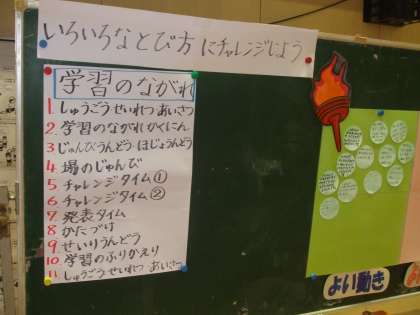 いろいろなとび方にチャレンジしよう
学習のながれ
1. しゅうごうせいれつ あいさつ
2. 学習のながれかくにん
3. じゅんびうんどう ほじょうんどう
4. 場のじゅんび
5. チャレンジタイム①
6. チャレンジタイム②
7. 発表タイム
8. かたづけ
9. せいりうんどう
10. 学習のふりかえり
11. しゅうごうせいれつ あいさつ
よい動き